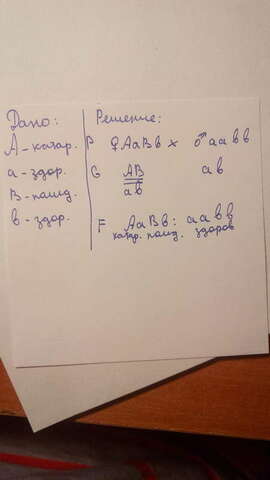 Дано:
А - катар.
а - здор.
В - полид.
в - здор.
Решение:
Р ♀АаВв х ♂аавв
G АВ ав
ав
F АаВв : аавв
катар. полид. здоров